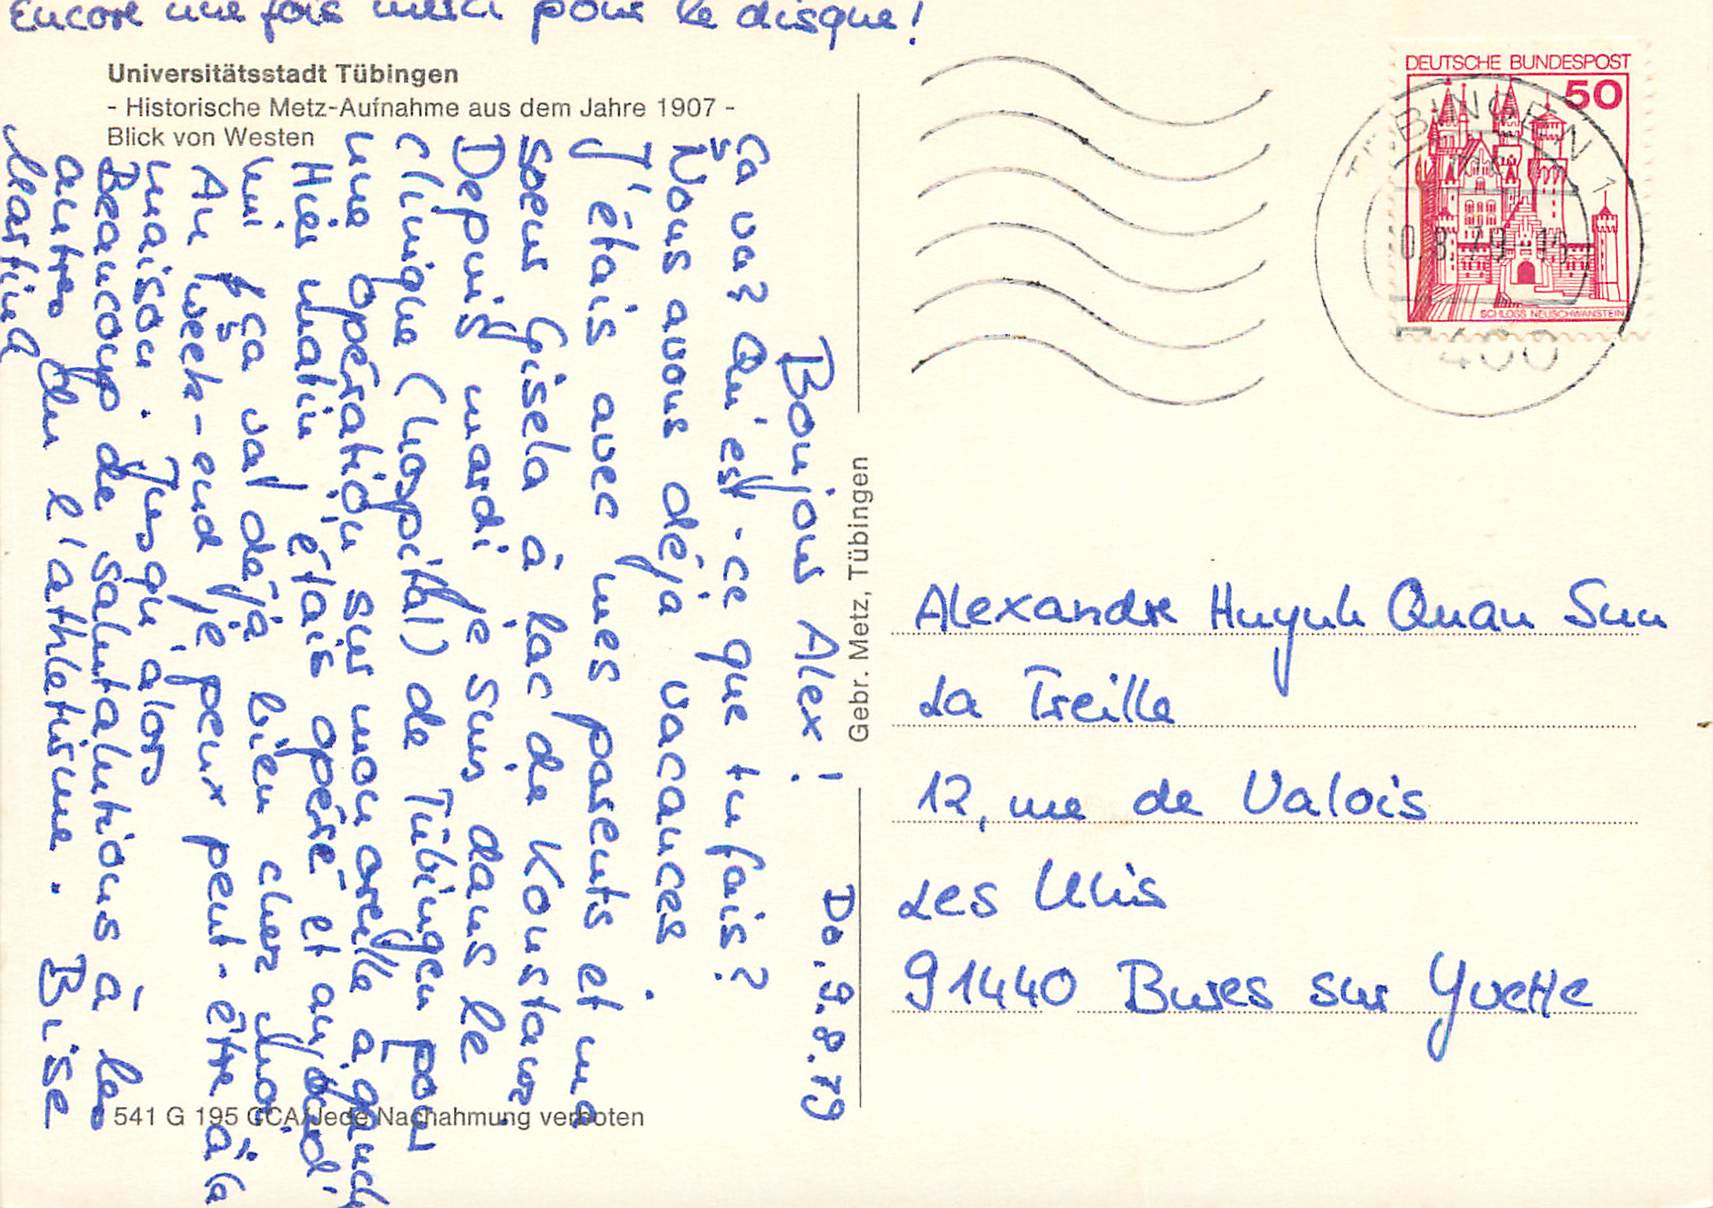 Encore une fois merci pour le disque!
Universitätsstadt Tübingen
- Historische Metz-Aufnahme aus dem Jahre 1907 -
Blick von Westen
Do. 9.8.79
Bonjour Alex!
Ça va? Qu'est-ce que tu fais?
Nous avons déja vacances.
J'étais avec mes parents et ma
soeur Gisela à lac de Konstanz.
Depuis mardi je suis dans le
clinique (hospital) de Tübingen pour
une opération sur mon oreille a gauch
Hier matin j'étais opéré et aujourd'
hui ça va déjà bien chez moi.
Au week-end je peux peut-être à la
maison. Jusqu'alors
Beaucoup de salutations à les
autres de l'athletisme. Bise
Martina
Gebr. Metz, Tübingen
541 G 195 CCA/Jede Nachahmung verboten
DEUTSCHE BUNDESPOST
50
SCHLOSS NEUSCHWANSTEIN
TÜBINGEN 1
0.8.79-16
7400
Alexandre Huynh Quan Suu
La Treille
12, rue de Valois
Les Ulis
91440 Bures sur Yvette